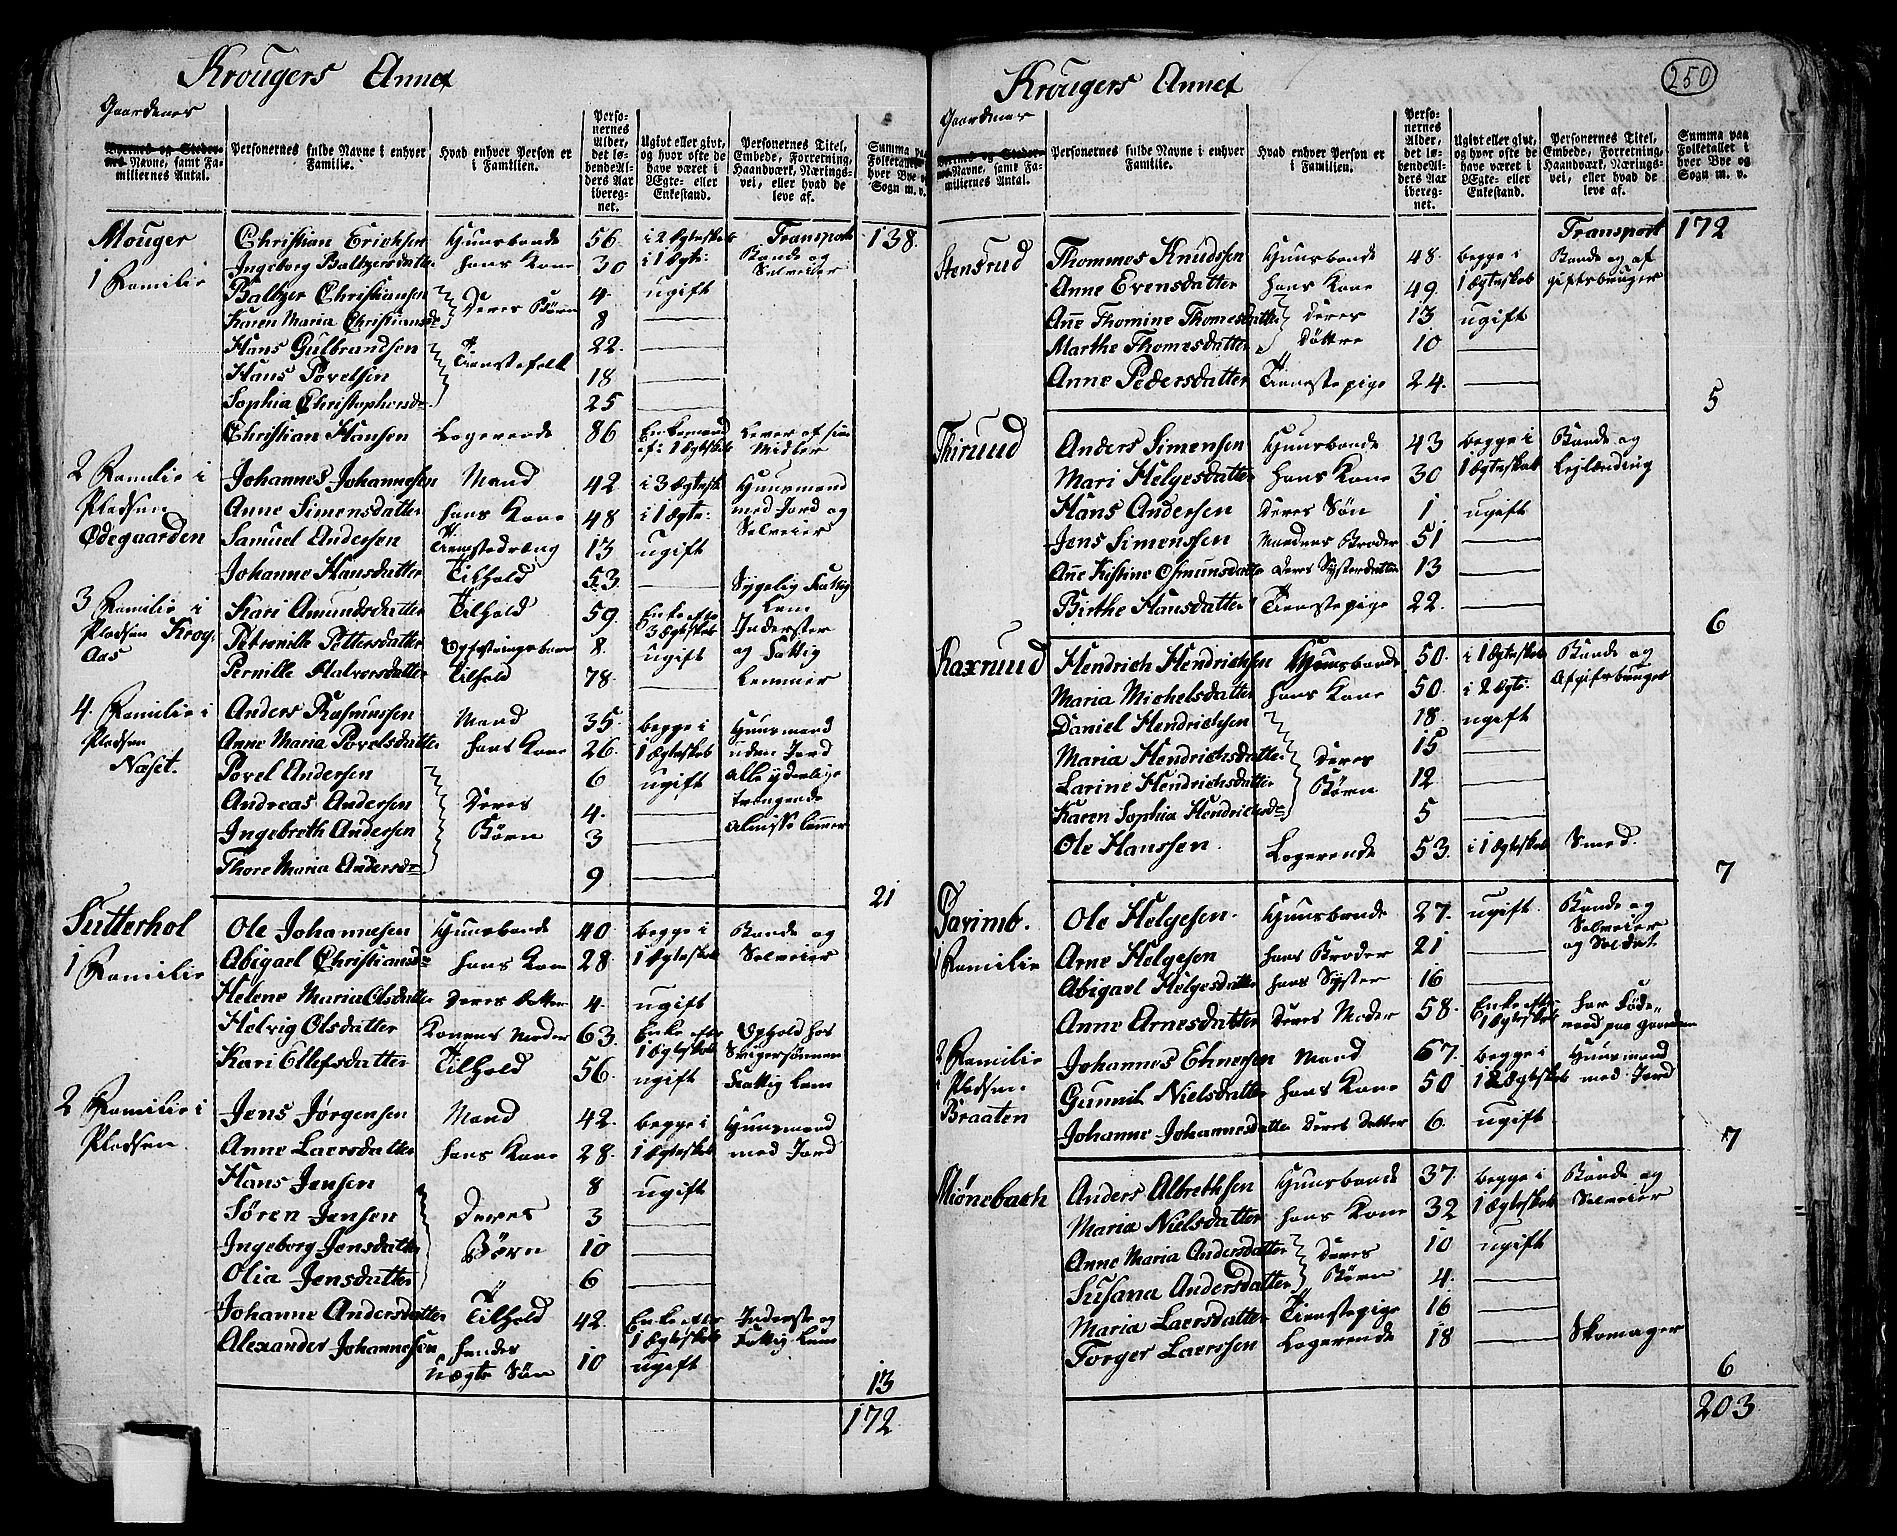 Krougers Annex
Gaardenes
Byernes og Stedernes Navne, samt Familiernes Antal.
Personernes fulde Navne i enhver Familie.
Hvad enhver Person er i Familien.
Personernes Alder, det løbende Alders Aar iberegnet.
Ugivt eller givt, og hvor ofte de have været i Ægte- eller Enkestand.
Personernes Titel, Embede, Forretning, Haandværk, Næringsvei, eller hvad de leve af.
Summa paa Folketallet i hver Bye og Sogn m. v.
Transport 138.
Mouger Christian Erichsen Huusbonde 56. i 2 Ægteskab Bonde og
1 Familie Ingeborg Baltzersdatter hans Kone 30 i 1 Ægte: Selveier
Baltzer Christiansen 4. ugift
Karen Maria Christiansd. Deres Børn 8
Hans Gulbrandsen 22.
Hans Povelsen Tienestefolk 18
Sophia Christophersdr. 25
Christian Hansen Logerende 86 Enkemand Lever af sine
ef: 1 Ægteskab Midler
2 Familie i Johannes Johannesen Mand 42 i 3 Ægtesk. Huusmand
Pladsen Anne Simensdatter hans Kone 48 i 1 Ægte: med Jord og
Ødegaarden Samuel Andersen Tienestedræng 13 ugift Selveier
Johanne Hansdatter Tilhold 53 Sygelig Fattig
3 Familie i Kari Amundsdatter Tilhold 59. Enke efter Lem
Pladsen Krog- 3 Ægteskab Inderster
Aas Petronille Pettersdatter Opfostringsbarn 8. ugift og Fattig
Pernille Halversdatter Tilhold 78. Lemmer
4. Familie i Anders Rasmussen Mand 35 begge i Huusmand
Pladsen Anne Maria Povelsdatter hans Kone 26. 1 Ægteskab uden Jord
Næset. Povel Andersen 6 ugift Alle yderlige
Andreas Andersen Deres 4. trængende
Ingebreth Andersen Børn 3 Almisse Lemmer
Thore Maria Andersd. 9
21
Sutterhol Ole Johannesen Huusbonde 40 begge i Bonde og
1 Familie Abigael Christiansd. hans Kone 28 1 Ægteskab Selveier
Helene Maria Olsdatter Deres Datter 4. ugift
Helvig Olsdatter Konens Moder 63. Enke efter Ophold hos
1 Ægteskab Svigersønnen
Kari Ellefsdatter Tilhold 56. ugift Fattig Lem
2 Familie i Jens Jørgensen Mand 42. begge i Huusmand
Pladsen Anne Laersdatter hans Kone 28. 1 Ægteskab med Jord
Hans Jensen 8 ugift
Søren Jensen Deres 3
Ingeborg Jensdatter Børn 10
Olia Jensdatter 6
Johanne Andersdatter Tilhold 42. Enke efter Inderste og
1 Ægteskab Fattig Lem
Alexander Johannesen hendes 10 ugift
Uægte Søn
13
172
Krougers Annex
250
Gaardenes
Byernes og Stedernes Navne, samt Familiernes Antal.
Personernes fulde Navne i enhver Familie.
Hvad enhver Person er i Familien.
Personernes Alder, det løbende Alders Aar iberegnet.
Ugivt eller givt, og hvor ofte de have været i Ægte- eller Enkestand.
Personernes Titel, Embede, Forretning, Haandværk, Næringsvei, eller hvad de leve af.
Summa paa Folketallet i hver Bye og Sogn m. v.
Transport 172
Stensrud Thommes Knudssen Huusbonde 48. begge i Bonde og af
Anne Evensdatter hans Kone 49 1 Ægteskab giftsbruuger
Añe Thomine Thomesdatter Deres 13 ugift
Marthe Thomesdatter Døttre 10
Anne Pedersdatter Tienestepige 24.
5
Thiruud Anders Simensen Huusbonde 43 begge i Bonde og
Mari Helgesdatter hans Kone 30 1 Ægteskab Leylænding
Hans Andersen Deres Søn 1 ugift
Jens Simenssen Mandens Broder 51
Añe Kistine Osmunsdatter Deres Systerdatter 13
Birthe Hansdatter Tienestepige 22.
6
Kaxruud Hendrich Hendrichsen Huusbonde 50. i 1 Ægteskab Bonde og
Maria Michelsdatter hans Kone 50. i 2 Ægte: Afgiftsbruuger
Daniel Hendrichsen 18. ugift
Maria Hendrichsdatter Deres 15
Larine Hendrichsdatter Børn 12
Karen Sophia Hendrichsd. 5
Ole Hanssen Logerende 53. i 1 Ægteskab Smed.
7
Ole Helgesen. Huusbonde 27. ugift. Bonde og
Selveier
1 Familie Arne Helgesen hans Broder 21 og Soldat
Abigael Helgesdatter hans Syster 16
Anne Arnesdatter Deres Moder 58. Enke efter har Føde-
1 Ægteskab raad paa Gaarden
2 Familie Johannes Ehnersen Mand 67. begge i Huusmand
Pladsen Gunnil Nielsdatter hans Kone 50 1 Ægteskab med Jord
Braaten Johanne Johannesdatter Deres Datter 6. ugift
7
Miønebach Anders Albrethsen Huusbonde 37. begge i Bonde og
Maria Nielsdatter hans Kone 32 1 Ægteskab Selveier
Anne Maria Andersdatter Deres 10 ugift
Susana Andersdatter Børn 4.
Maria Laersdatter Tienestepige 16
Torger Laerssen Logerende 18 Skomager
6
203